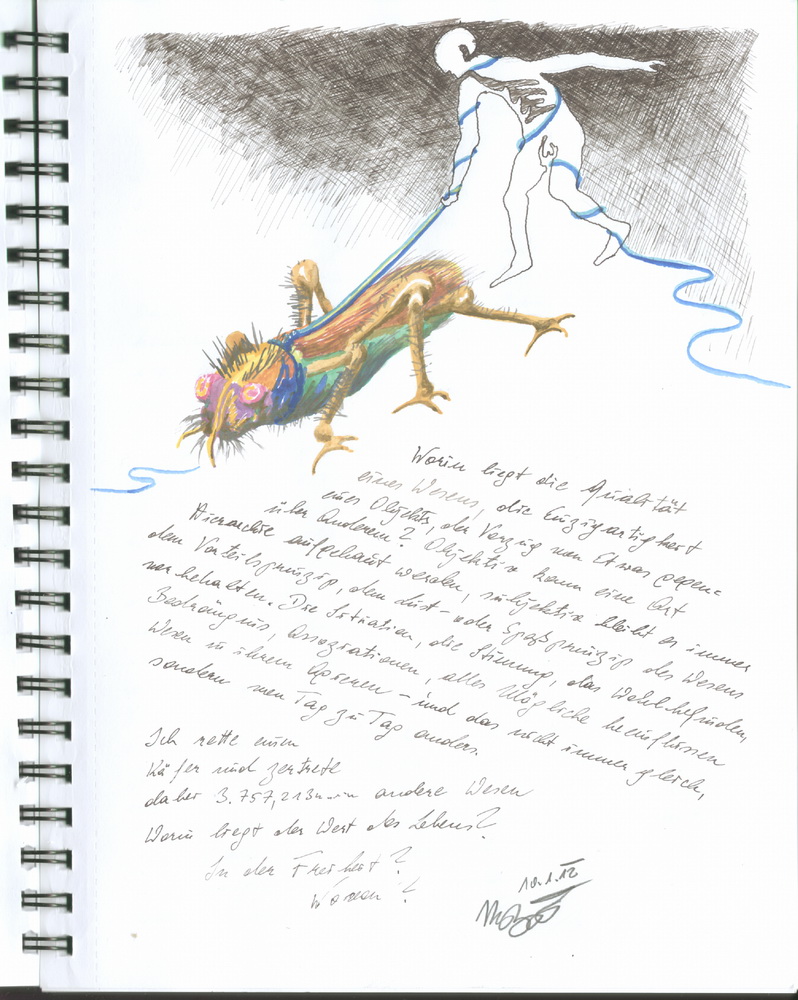 Worin liegt die Qualität
eines Wesens, die Einzigartigkeit
eines Objekts, der Vorzug von Etwas gegen=
über Anderem? Objektiv kann eine Art
Hierarchie aufgebaut werden, subjektiv bleibt es immer
dem Vorteilsprinzip, dem Lust- oder Spaßprinzip des Wesens
vorbehalten. Die Situation, die Stimmung, das Wohlbefinden,
Bedrängnis, Assoziationen, alles Mögliche beeinflussen
Wesen in ihrem Agieren - und das nicht immer gleich,
sondern von Tag zu Tag anders.
Ich rette einen
Käfer und zertrete
dabei 3.757,213 andere Wesen
Worin liegt der Wert des Lebens?
In der Freiheit?
Worin?
10.1.12